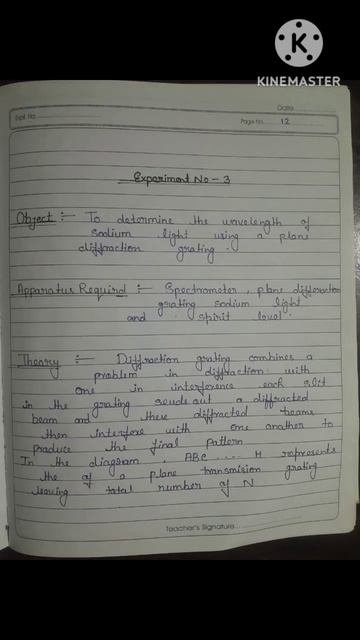 KINEMASTER
Date
Expt. No.
Page No. 12
Experiment No - 3
Object :- To determine the wavelength of
sodium light using a plane
diffraction grating.
Apparatus Required :- Spectrometer, plane diffraction
grating sodium light
and spirit level.
Theory :- Diffraction grating combines a
problem in diffraction with
one in interference each slit
in the grating sends out a diffracted
beam and these diffracted beams
then interfere with one another to
produce the final pattern
In the diagram, ABC .... H represents
the of a plane transmision grating
leaving total number of N
Teacher's Signature